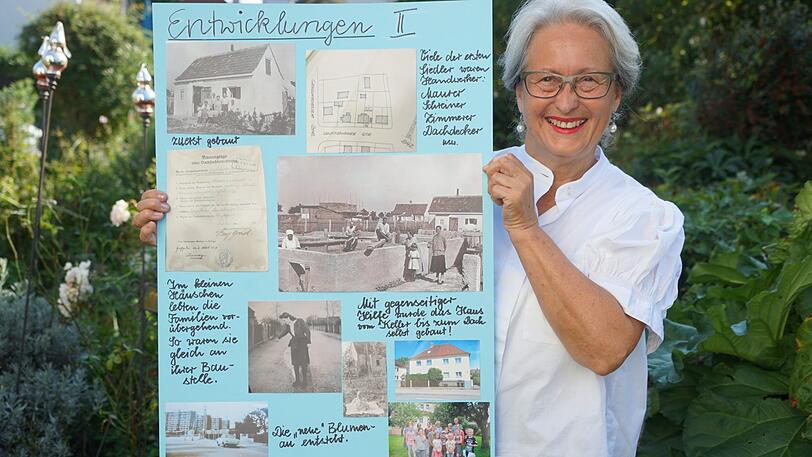 Entwicklungen II
Viele der ersten
Siedler waren
Handwerker:
Maurer
Schreiner
Zimmerer
Dachdecker
usw.
zuerst gebaut
Im kleinen
Häuschen
lebten die
Familien vor-
übergehend.
So waren sie
gleich an
ihrer Bau-
stelle.
Mit gegenseitiger
Hilfe wurde das Haus
vom Keller bis zum Dach
selbst gebaut!
Die "neue" Blumen-
au entsteht.